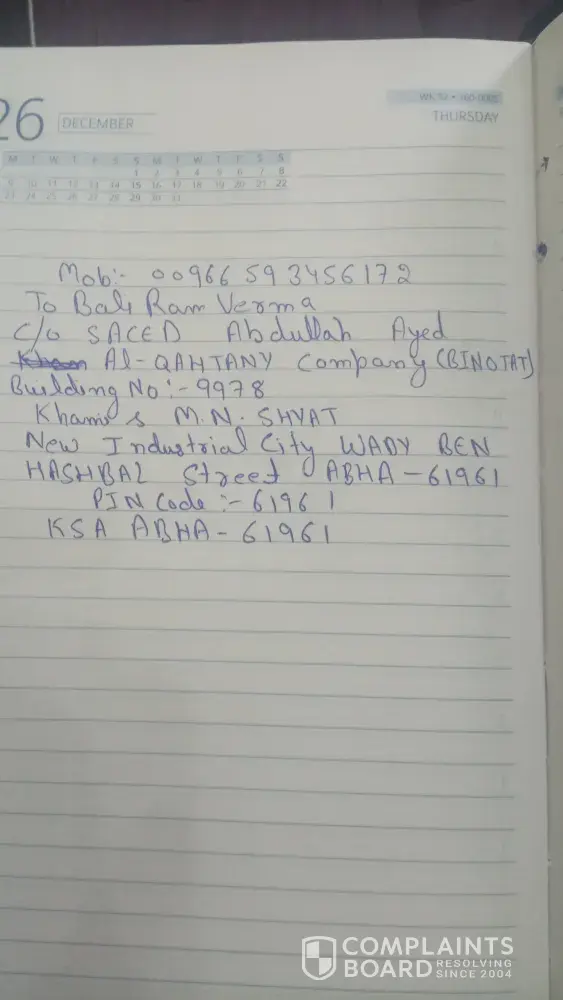 26 DECEMBER
THURSDAY
M T W T F S S M T W T F S S
1 2 3 4 5 6 7 8
9 10 11 12 13 14 15 16 17 18 19 20 21 22
23 24 25 26 27 28 29 30 31
Mob:- 00966 593456172
To Bali Ram Verma
C/o SACED Abdullah Ayed
Al-QAHTANY Company (BINOTAT)
Building No:- 9978
Khamis M.N. SHYAT
New Industrial City WADY BEN
HASHBAL Street ABHA - 61961
PIN Code :- 61961
KSA ABHA - 61961
COMPLAINTS
BOARD RESOLVING
SINCE 2004